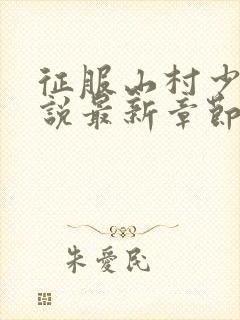 征服山村少
說最新章節
朱愛民